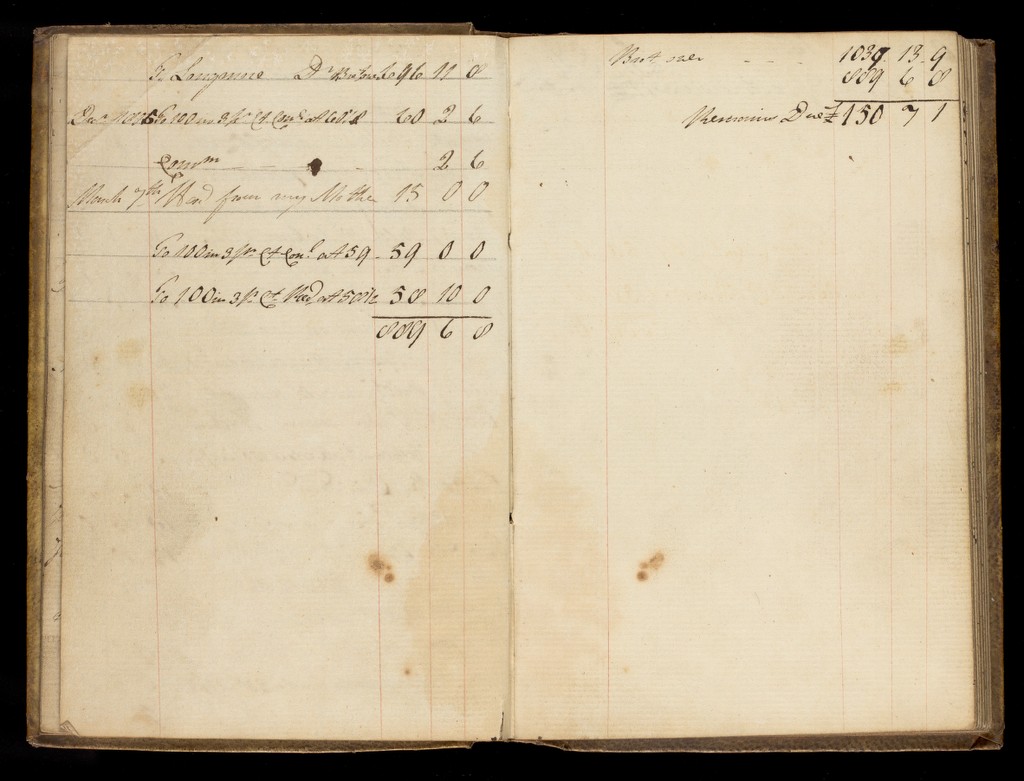 To Dr Brot over 696 11 8
To 100 in 3 pr Ct Cons at 60 1/8 60 2 6
Commn 2 6
March 7th Recd from my Mother 15 0 0
To 100 in 3 pr Ct Cons at 59 59 0 0
To 100 in 3 pr Ct Red at 58 1/2 58 10 0
889 6 8
Brot over 1039 13 9
889 6 8
Remains Due £ 150 7 1